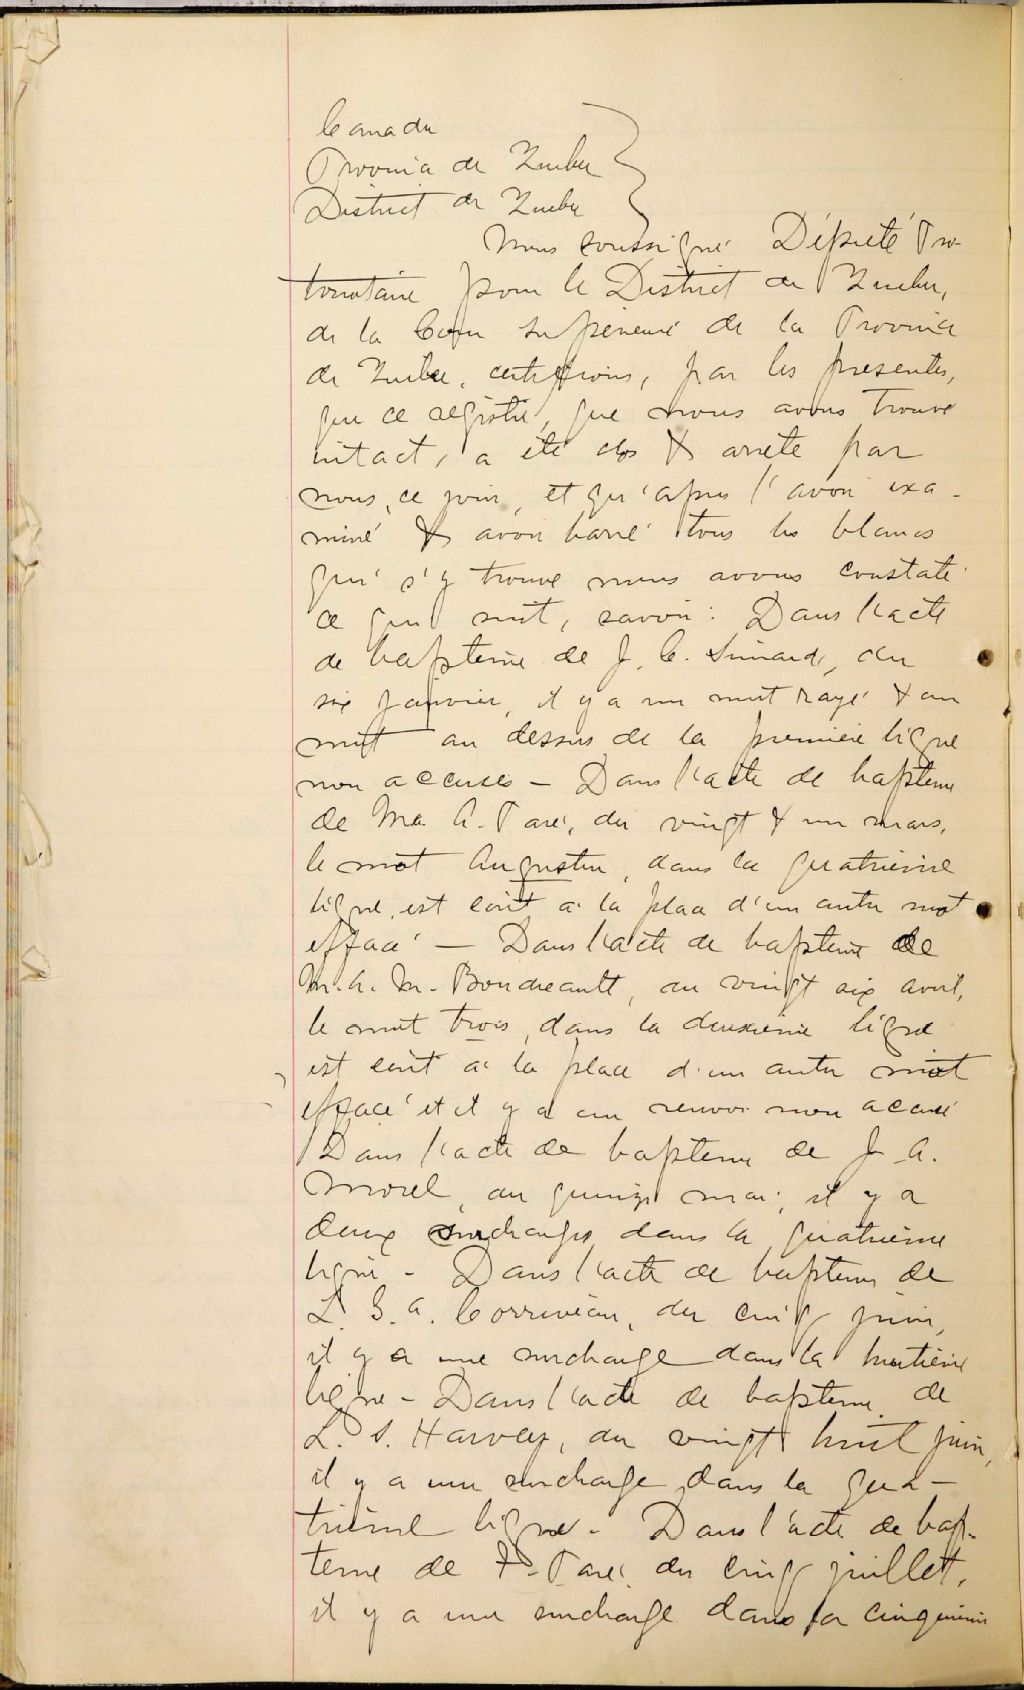 Canada
Province de Québec
District de Québec
Nous soussigné Député Pro-
tonotaire pour le District de Québec,
de la Cour Supérieure de la Province
de Québec, certifions, par les présentes,
que ce registre, que nous avons trouvé
intact, a été clos & arrêté par
nous, ce jour, et qu'après l'avoir exa-
miné & avoir barré tous les blancs
qui s'y trouve nous avons constaté
ce qui suit, savoir : Dans l'acte
de baptême de J. C. Simard, du
six janvier, il y a un mot rayé & un
mot au dessus de la première ligne
non accusés - Dans l'acte de baptême
de Ma. A. Paré, du vingt & un mars,
le mot Augustin, dans la quatrième
ligne, est écrit à la place d'un autre mot
effacé - Dans l'acte de baptême de
M. A. M. Boudreault, du vingt six avril,
le mot trois, dans la deuxième ligne
est écrit à la place d'un autre mot
effacé et il y a un renvoi non accusé
Dans l'acte de baptême de J. A.
Morel, du quinze mai, il y a
deux surcharges dans la quatrième
ligne - Dans l'acte de baptême de
L. G. A. Corriveau, du cinq juin,
il y a une surcharge dans la huitième
ligne - Dans l'acte de baptême de
L. S. Harvey, du vingt huit juin,
il y a une surcharge dans la qua-
trième ligne - Dans l'acte de bap-
tême de F. Paré, du cinq juillet,
il y a une surcharge dans la cinquième